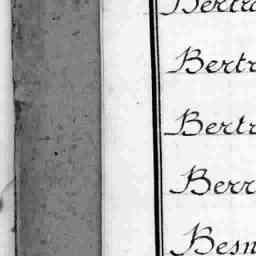 Bertra
Bertr
Bertr
Berr
Besn